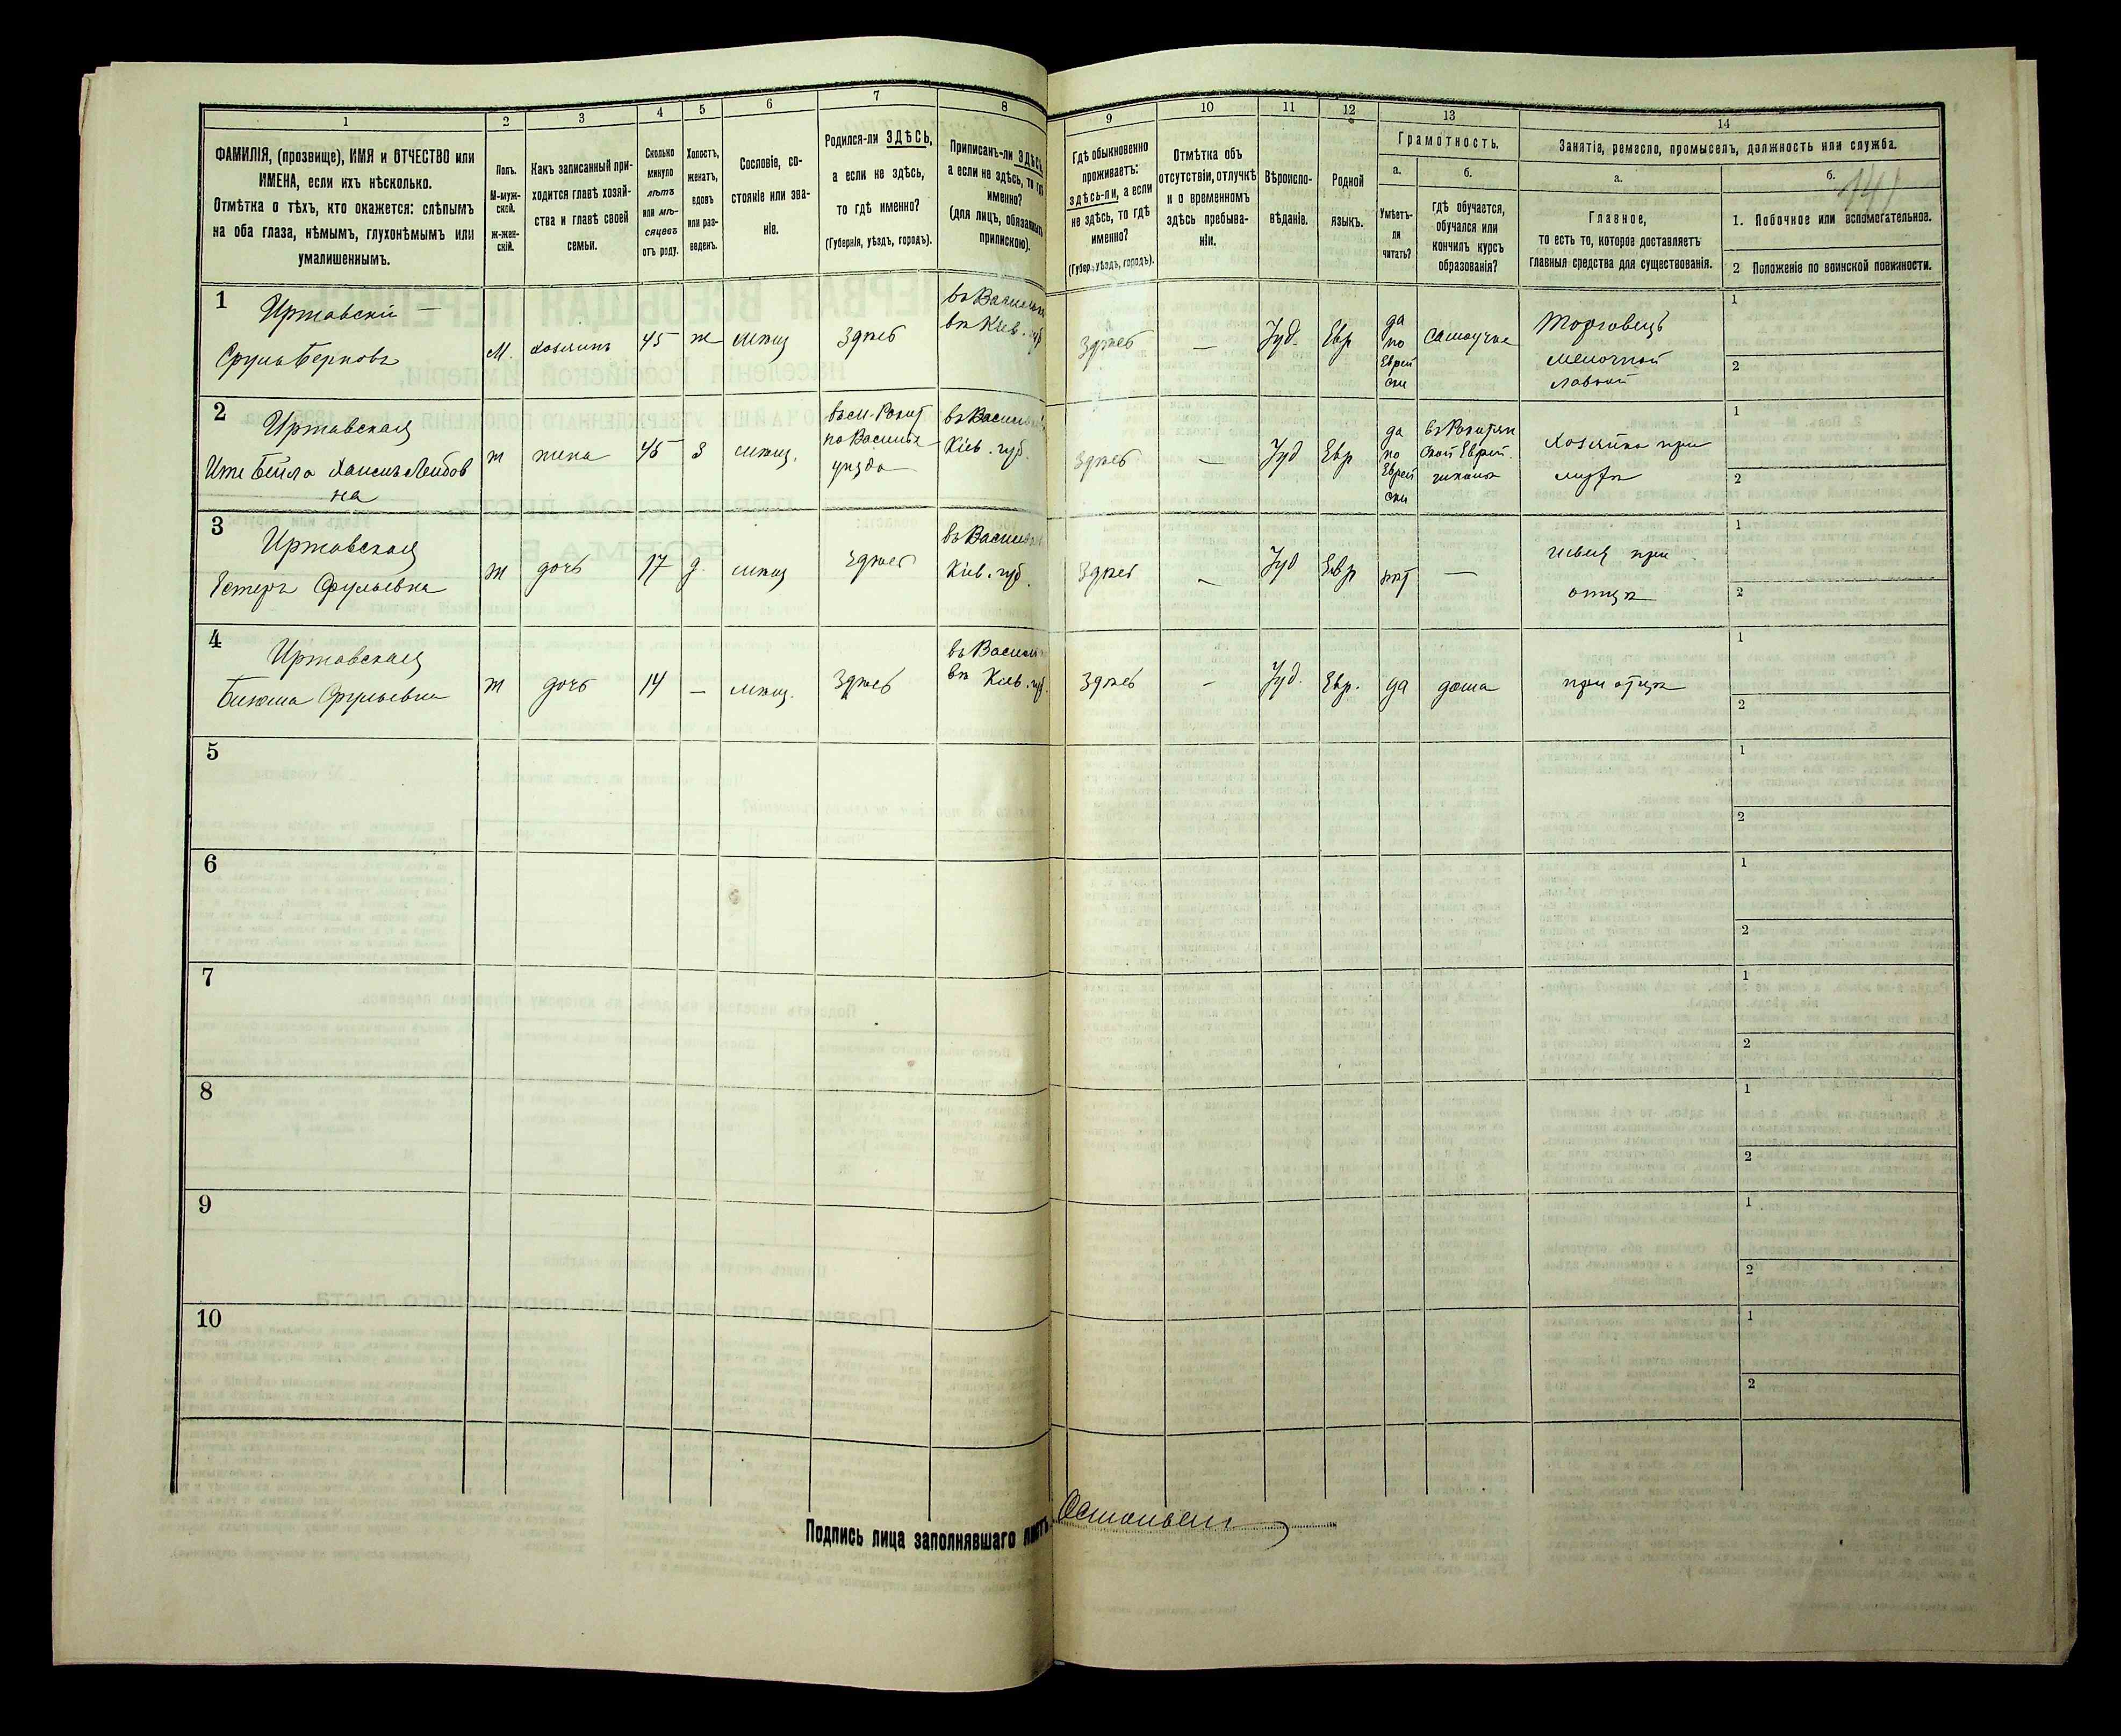 1 2 3 4 5 6 7 8 9 10 11 12 13 14
ФАМИЛІЯ, (прозвище), ИМЯ и ОТЧЕСТВО или
ИМЕНА, если ихъ нѣсколько.
Отмѣтка о тѣхъ, кто окажется: слѣпымъ
на оба глаза, нѣмымъ, глухонѣмымъ или
умалишеннымъ.
Полъ.
М-муж-
ской.
ж-жен-
скій.
Какъ записанный при-
ходится главѣ хозяй-
ства и главѣ своей
семьи.
Сколько
минуло
лѣтъ
или мѣ-
сяцевъ
отъ роду.
Холостъ,
женатъ,
вдовъ
или раз-
веденъ.
Сословіе, со-
стояніе или зва-
ніе.
Родился-ли ЗДѢСЬ,
а если не здѣсь,
то гдѣ именно?
(Губернія, уѣздъ, городъ).
Приписанъ-ли ЗДѢСЬ,
а если не здѣсь, то гдѣ
именно?
(для лицъ, обязанныхъ
припискою).
Гдѣ обыкновенно
проживаетъ:
здѣсь-ли, а если
не здѣсь, то гдѣ
именно?
(Губер., уѣздъ, городъ).
Отмѣтка объ
отсутствіи, отлучкѣ
и о временномъ
здѣсь пребыва-
ніи.
Вѣроиспо-
вѣданіе.
Родной
языкъ.
Грамотность.
а.
Умѣетъ-
ли
читать?
б.
гдѣ обучается,
обучался или
кончилъ курсъ
образованія?
Занятіе, ремесло, промыселъ, должность или служба.
а.
Главное,
то есть то, которое доставляетъ
главныя средства для существованія.
б.
141
1. Побочное или вспомогательное.
2 Положеніе по воинской повинности.
1
Иржавскій
Сруль Берковъ
М. хозяинъ 45 ж мѣщ здѣсь
въ Василько
вѣ Кіев. губ
здѣсь — Іуд. Евр
да
по
Еврей
ски
самоучка
Торговецъ
мелочной
лавкой
1
2
2
Иржавская
Ите Бейла Хаимъ Лейбов
на
ж жена 45 З мѣщ.
въ м. Рокит
но Васильк
уѣзда
въ Васильк
Кіев. губ.
здѣсь — Іуд Евр
да
по
Еврей
ски
въ Рокитян
ской Еврей.
школѣ
Хозяйка при
мужѣ
1
2
3
Иржавская
Естеръ Срульевна
ж дочь 17 д. мѣщ здѣсь
въ Васильк
Кіев. губ.
здѣсь — Іуд Евр нѣт —
швея при
отцѣ
1
2
4
Иржавская
Срульевна
ж дочь 14 — мѣщ. здѣсь
въ Василько
вѣ Кіев. губ.
здѣсь — Іуд. Евр. да дома при отцѣ
1
2
5
1
2
6
1
2
7
1
2
8
1
2
9
1
2
10
1
2
Подпись лица заполнявшаго листъ